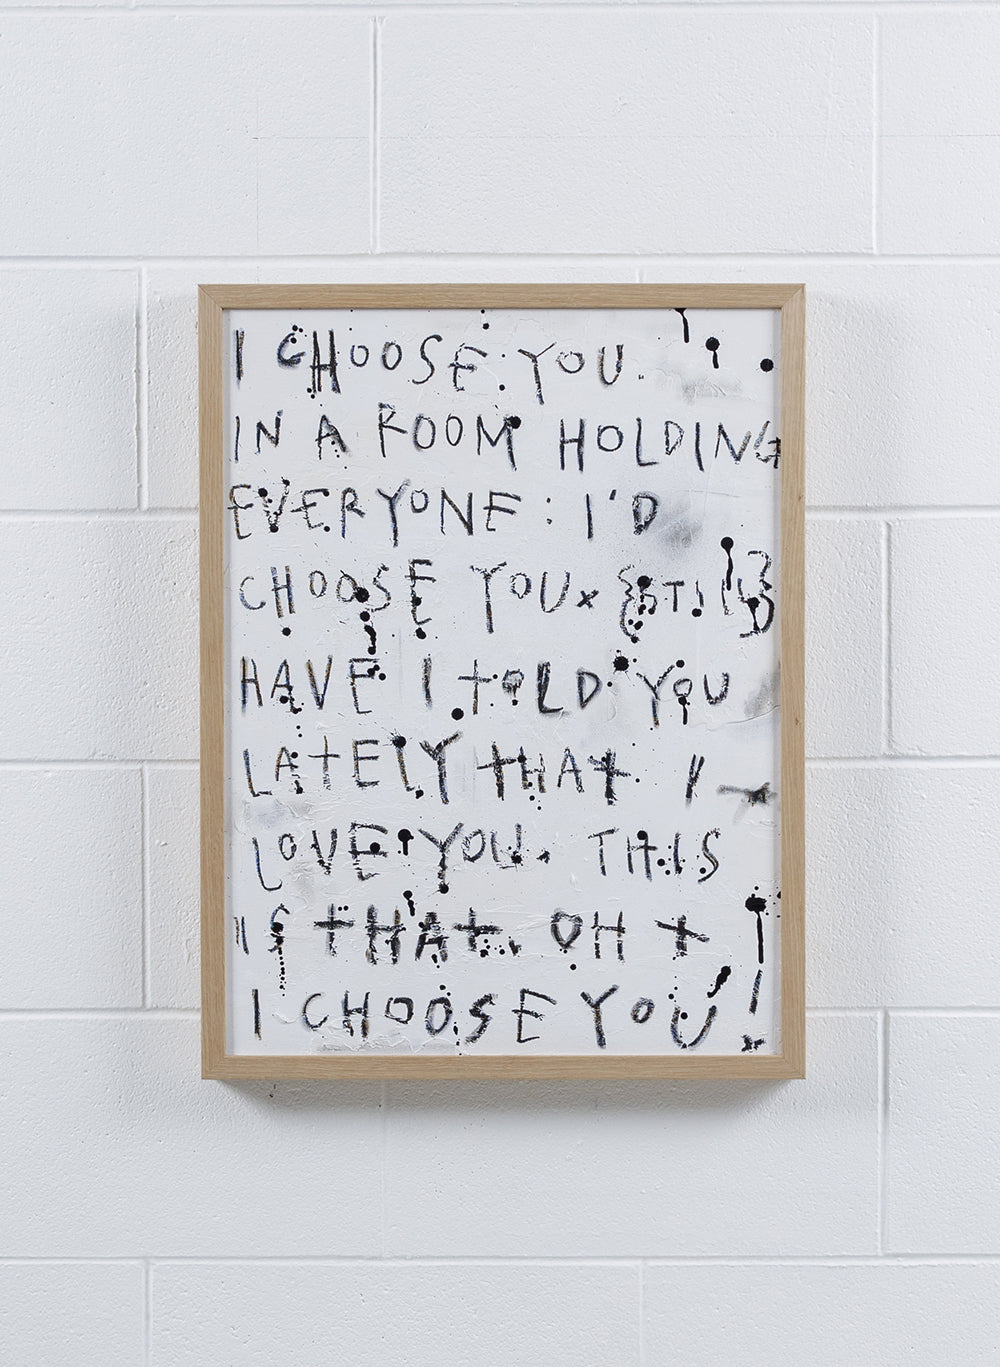 I CHOOSE YOU.
IN A ROOM HOLDING
EVERYONE: I'D
CHOOSE YOU x {STILL}
HAVE I TOLD YOU
LATELY THAT I
LOVE YOU. THIS
IS THAT. OH +
I CHOOSE YOU!